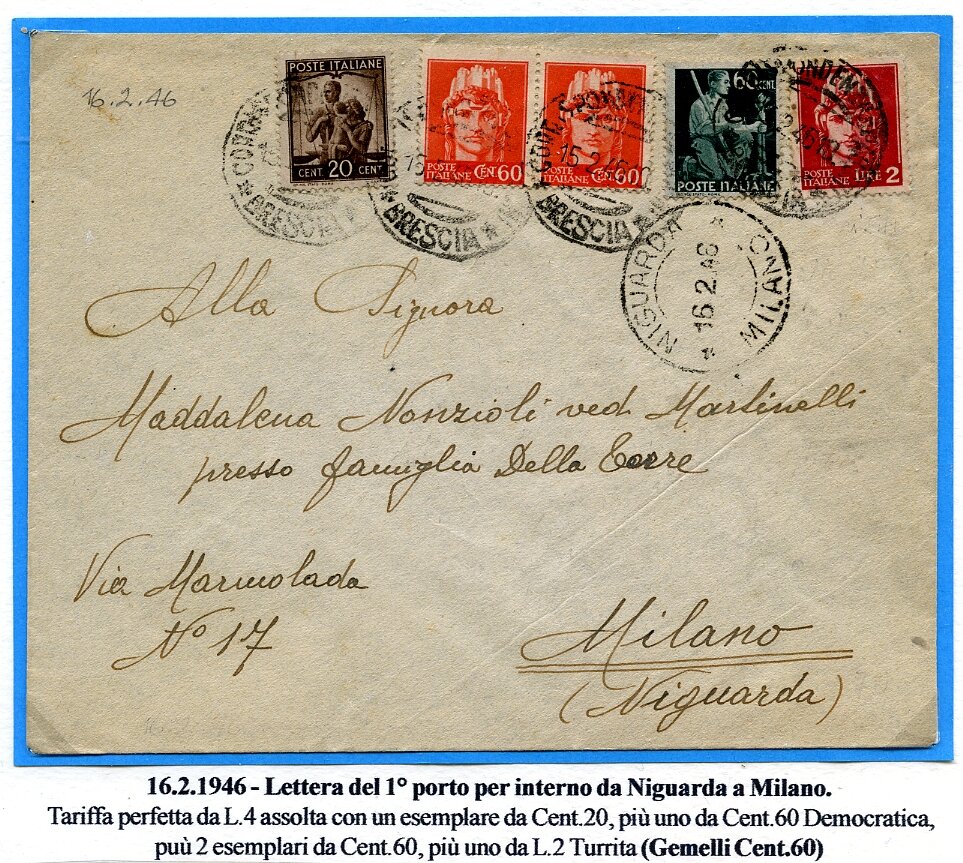 16.2.46
POSTE ITALIANE
CENT. 20 CENT.
POSTE ITALIANE CEN. 60
POSTE ITALIANE CEN. 60
60 CENT.
POSTE ITALIANE
POSTE ITALIANE LIRE 2
BRESCIA
BRESCIA
15.2.46
BRESCIA
NIGUARDA * MILANO *
16.2.46
Alla Signora
Maddalena Nonzioli ved Martinelli
presso famiglia Della Torre
Via Marmolada
N° 17
Milano
(Niguarda)
16.2.1946 - Lettera del 1° porto per interno da Niguarda a Milano.
Tariffa perfetta da L.4 assolta con un esemplare da Cent.20, più uno da Cent.60 Democratica,
puù 2 esemplari da Cent.60, più uno da L.2 Turrita (Gemelli Cent.60)